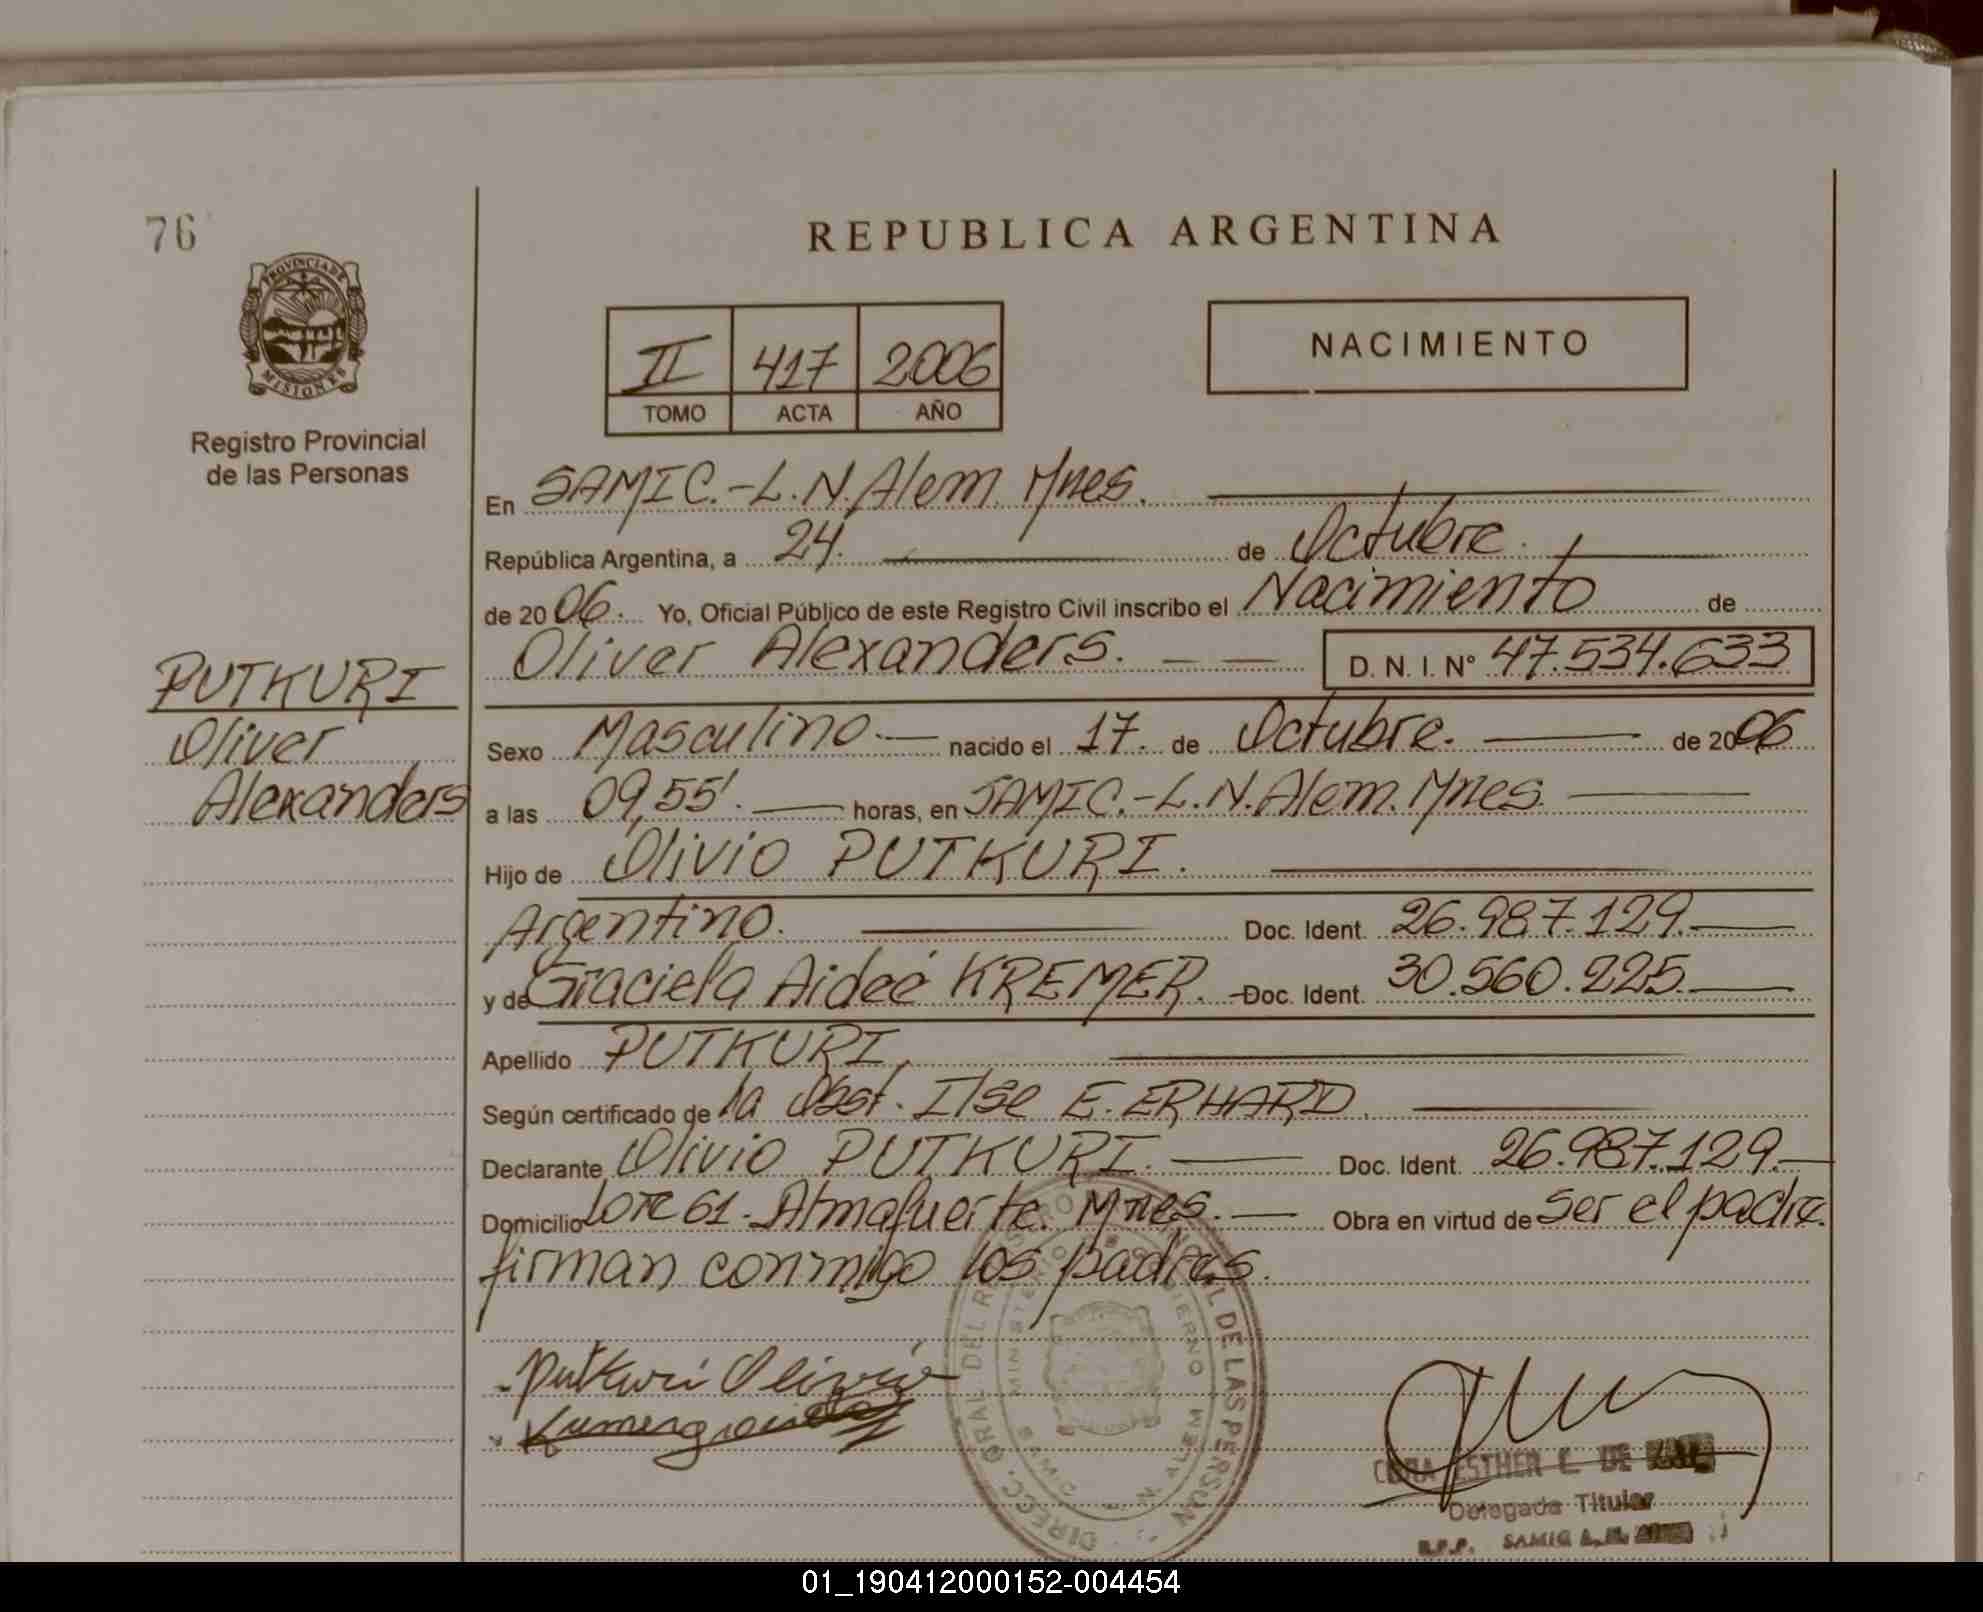 76
REPUBLICA ARGENTINA
PROVINCIA DE
MISIONES
Registro Provincial
de las Personas
II 417 2006
TOMO ACTA AÑO
NACIMIENTO
En SAMIC.-L.N.Alem. Mnes.
República Argentina, a 24. de Octubre.
de 2006. Yo, Oficial Público de este Registro Civil inscribo el Nacimiento de
Oliver Alexanders. — — D. N. I. N° 47.534.633
PUTKURI
Oliver
Alexanders
Sexo Masculino.— nacido el 17. de Octubre. — de 2006
a las 09,55'. — horas, en SAMIC.-L.N.Alem. Mnes. —
Hijo de Olivio PUTKURI. —
Argentino. — Doc. Ident. 26.987.129.—
y de Graciela Aideé KREMER. - Doc. Ident. 30.560.225.—
Apellido PUTKURI, —
Según certificado de la Obst. Ilse E. ERHARD. —
Declarante Olivio PUTKURI. — Doc. Ident. 26.987.129.—
Domicilio Lote 61 - Almafuerte. Mnes. — Obra en virtud de ser el padre.
firman conmigo los padres.
Putkuri Olivio
DIRECC. GRAL DEL REGISTRO PROVINCIAL DE LAS PERSON
MINISTERIO DE GOBIERNO
SAMIC L. N. ALEM
ESTHER C. DE
Delegada Titular
R.P.P. SAMIC L.N.
01_190412000152-004454